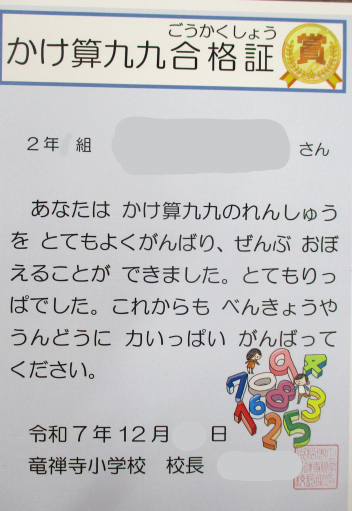 ごうかくしょう
かけ算九九合格証
賞
2年 組 さん
あなたは かけ算九九のれんしゅう
を とてもよくがんばり、ぜんぶ おぼ
えることが できました。とてもりっ
ぱでした。これからも べんきょうや
うんどうに 力いっぱい がんばって
ください。
令和7年12月 日
竜禅寺小学校 校長